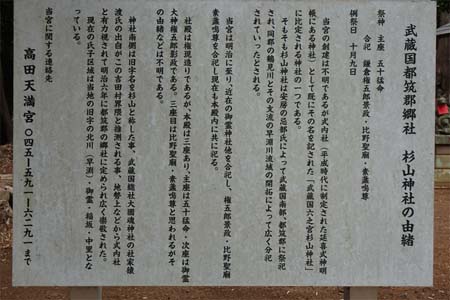 武蔵国都筑郡郷社　杉山神社の由緒
祭神　主座　五十猛命
合祀　鎌倉権五郎景政・比野聖廟・素盞鳴尊
例祭日　十月九日
当宮の創建は不明であるが式内社（平成時代に制定された延喜式神明
帳にある神社）として既にその名を記された「武蔵国六之宮杉山神社」
に比定される神社の一つである。
そもそも杉山神社は安房の忌部氏によって武蔵国南部、都筑郡に祭祀
され、同郡の鶴見川とその支流の早渕川流域の開拓によって広く分祀
されていったとされる。
当宮は明治に至り、近在の御霊神社他を合祀し、権五郎景政・比野聖廟
素盞鳴尊を合祀し現在も本殿内に共に祀る。
社殿は権現造りであるが、本殿は三座あり、主座は五十猛命・次座は御霊
大神権五郎影政である。三座目は比野聖廟・素盞鳴尊と思われるがそ
の由緒などは不明である。
神社南側は旧字名を杉山と称した事、武蔵国総社大國魂神社の社家猿
渡氏の出自がこの吉田村界隈と推測される事、地勢上などから式内社
と有力視されて明治六年に都筑郡の郷社に定められ広く崇敬された。
現在の氏子区域は当地の旧字の北川（早渕）・御霊・稲坂・中里とな
っている。
当宮に関する連絡先
高田天満宮　〇四五ー五九一ー六二九一まで